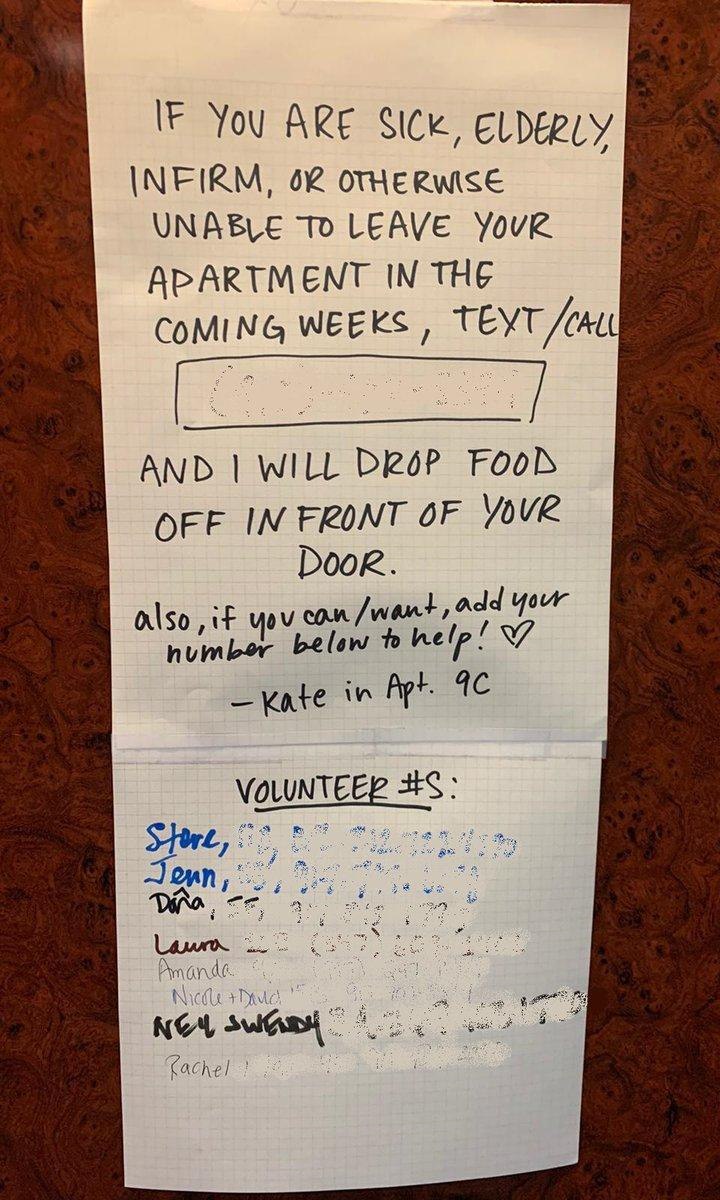 IF YOU ARE SICK, ELDERLY,
INFIRM, OR OTHERWISE
UNABLE TO LEAVE YOUR
APARTMENT IN THE
COMING WEEKS, TEXT/CALL
AND I WILL DROP FOOD
OFF IN FRONT OF YOUR
DOOR.
also, if you can/want, add your
number below to help! ♡
- Kate in Apt. 9C
VOLUNTEER #S:
Steve,
Jenn,
Laura
Amanda
Nicole + David
Rachel